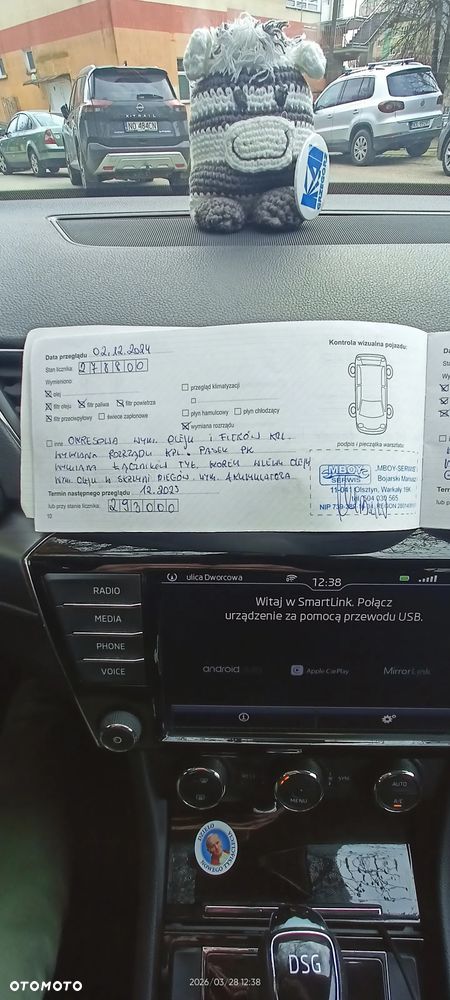 X-TRAIL
NO 484CN
Data przeglądu 02.12.2024
Stan licznika: 278800
Wymieniono:
olej
przegląd klimatyzacji
filtr oleju filtr paliwa filtr powietrza
filtr przeciwpyłowy świece zapłonowe
płyn hamulcowy płyn chłodzący
wymiana rozrządu
inne OKRESOWA WYM. OLEJU I FILTRÓW KPL.
WYMIANA ROZRZĄDU KPL. PASEK PK
WYMIANA ŁĄCZNIKÓW TYŁ.
WYM. OLEJU W SKRZYNI BIEGÓW. WYM. AKUMULATORA.
Termin następnego przeglądu 12.2025
lub przy stanie licznika: 293000
10
Kontrola wizualna pojazdu:
podpis i pieczątka warsztatu
MBOY
SERWIS
"MBOY-SERWIS"
Bojarski Mariusz
11-041 Olsztyn, Warkały 19K
tel. 504 030 565
RADIO
MEDIA
PHONE
VOICE
ulica Dworcowa
12:38
Witaj w SmartLink. Połącz
urządzenie za pomocą przewodu USB.
androidauto
Apple CarPlay
MirrorLink
REST
SYNC
MENU
AUTO
A/C
DZIEŁO
NOWEGO TYSIĄCLECIA
DSG
2026/03/28 12:38
OTOMOTO